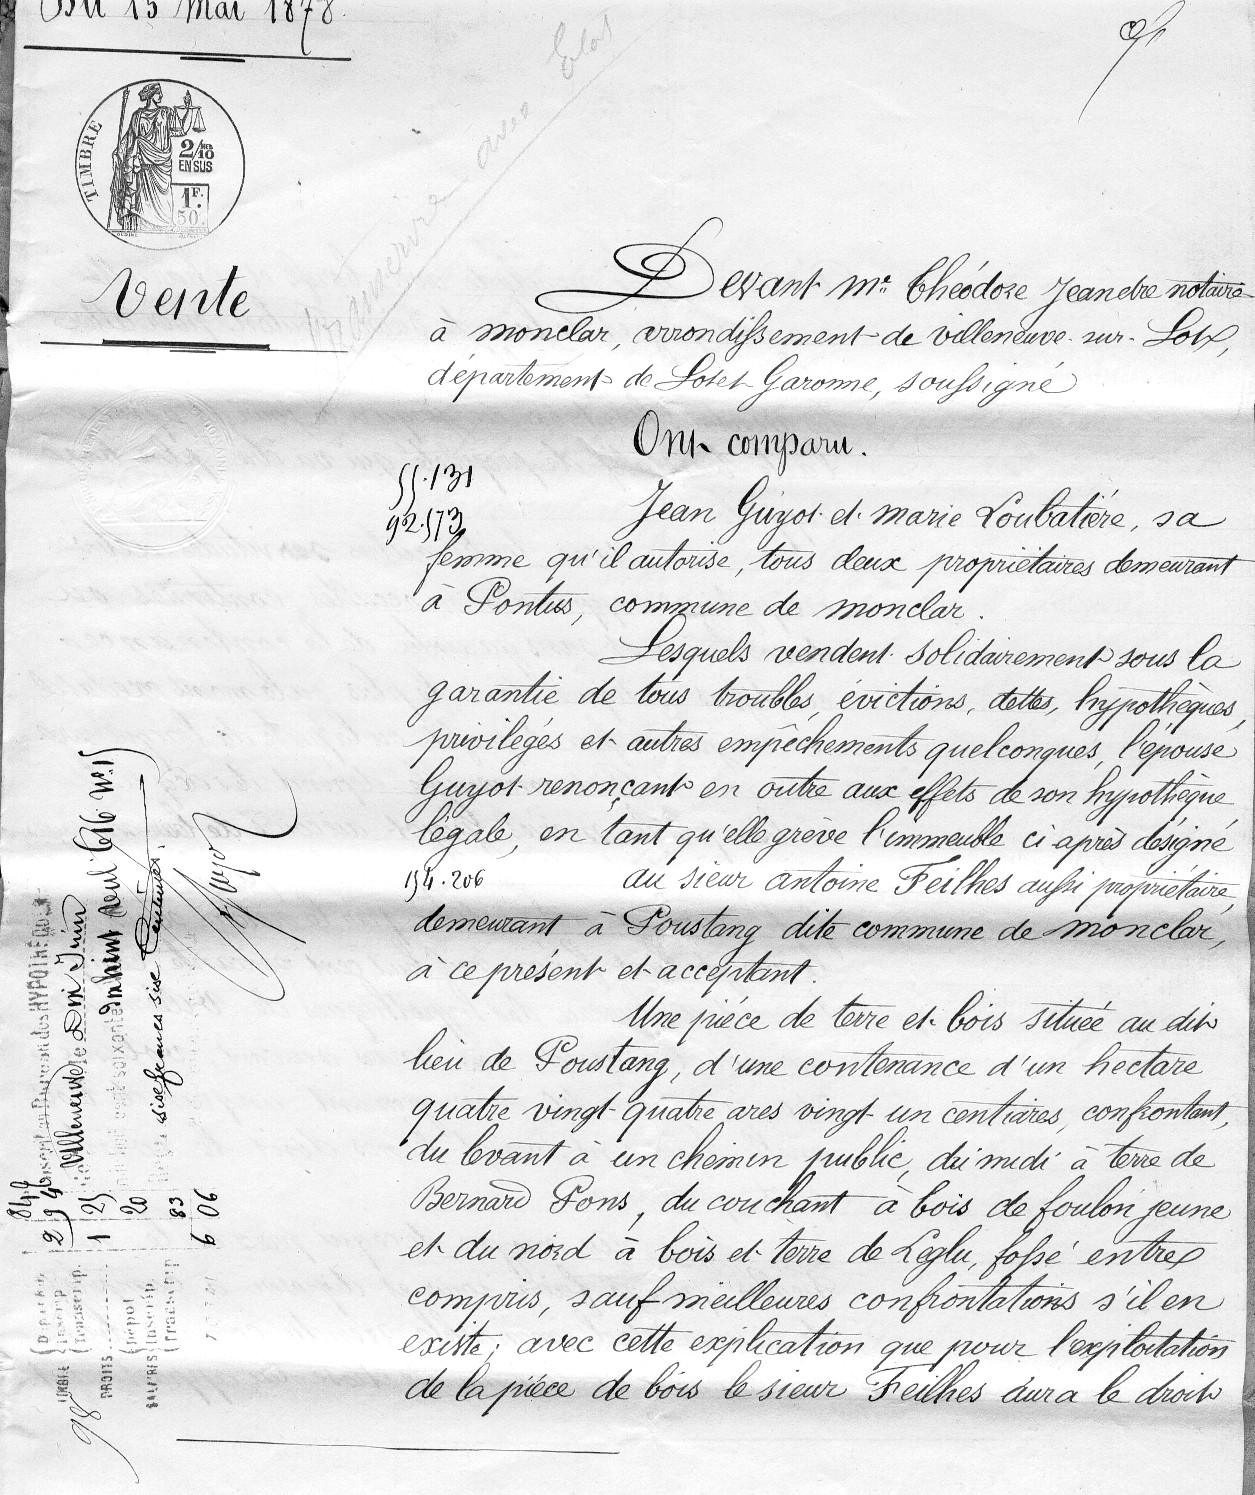 Du 15 Mai 1878.
TIMBRE
2/10 MES
EN SUS
1F.
50.
Vente
transcrire avec
Devant Mr. Théodore Jeandre notaire
à monclar, arrondissement de villeneuve-sur-Lot,
département de Lot et Garonne, soussigné
Ont comparu.
55.131
92.573
Jean Guyot et marie Loubatière, sa
femme qu'il autorise, tous deux propriétaires demeurant
à Pontus, commune de monclar.
Lesquels vendent solidairement sous la
garantie de tous troubles, évictions, dettes, hypothèques,
privilèges et autres empêchements quelconques, l'épouse
Guyot renonçant en outre aux effets de son hypothèque
légale, en tant qu'elle grève l'immeuble ci après désigné
154.206
au sieur antoine Feilhes aussi propriétaire,
demeurant à Poustang dite commune de monclar,
à ce présent et acceptant.
Une pièce de terre et bois située au dit
lieu de Poustang, d'une contenance d'un hectare
quatre vingt quatre ares vingt un centiares, confrontant,
du levant à un chemin public, du midi à terre de
Bernard Pons, du couchant à bois de foulon jeune
et du nord à bois et terre de Leglu, fossé entre
compris, sauf meilleures confrontations s'il en
existe; avec cette explication que pour l'exploitation
de la pièce de bois le sieur Feilhes aura le droit
des HYPOTHÈQUES
Villeneuve le Dix Juin
mil huit cent soixante
six francs six centimes.
Guyot
TIMBRE
Inscrip.
Transcrip.
DROITS
SALAIRES
Dépôt
Inscrip.
Transcrip.
1 25
20
83
6 06
98